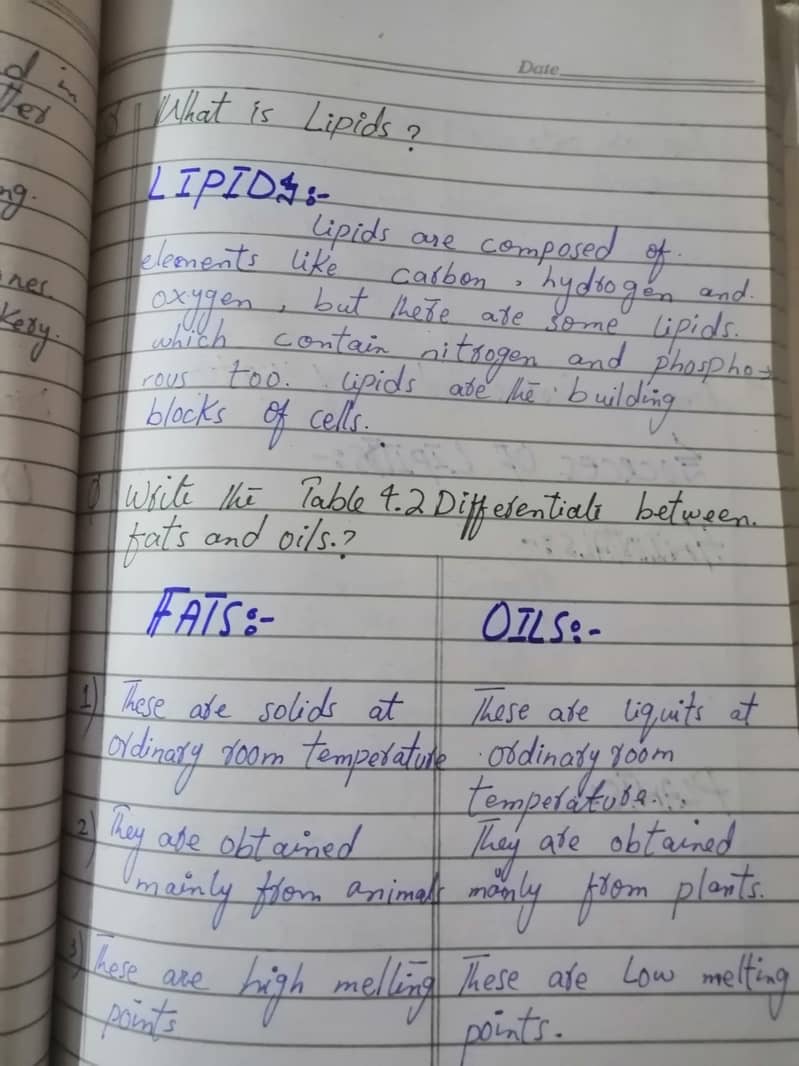 d in
tter
ng.
nes.
Kery.
Date
Q What is Lipids?
LIPIDS:-
Lipids are composed of
elements like carbon, hydrogen and
oxygen, but there are some lipids.
which contain nitrogen and phospho-
rous too. Lipids are the building
blocks of cells.
Q Write the Table 4.2 Differentiate between.
fats and oils.?
FATS:- OILS:-
1) These are solids at These are liquits at
ordinary room temperature ordinary room
temperature...
2) They are obtained They are obtained
mainly from animals mainly from plants.
3) These are high melling These are Low melting
points points.